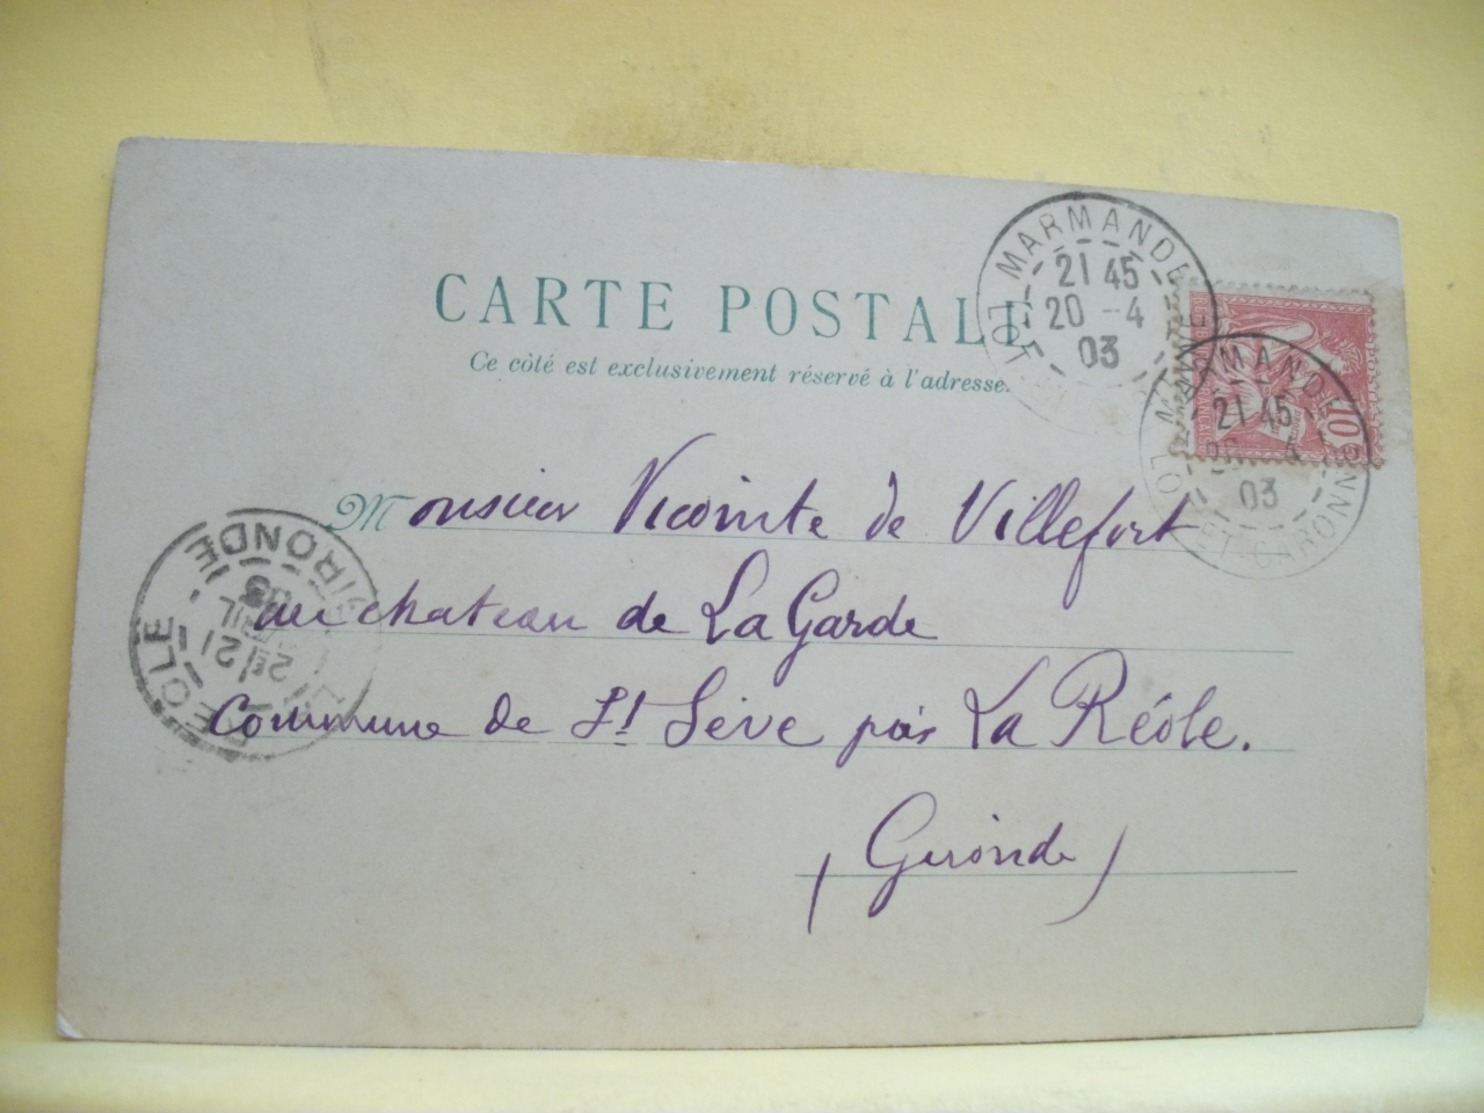 CARTE POSTALE
Ce côté est exclusivement réservé à l'adresse.
MARMANDE
21 45
20 - 4
03
LOT
MARMANDE
21 45
20 4
03
LOT-ET-GARONNE
10
Monsieur Vicomte de Villefort
au chateau de La Garde
Commune de St Sève par La Réole.
(Gironde)
LA REOLE - GIRONDE
21
AVRIL
03